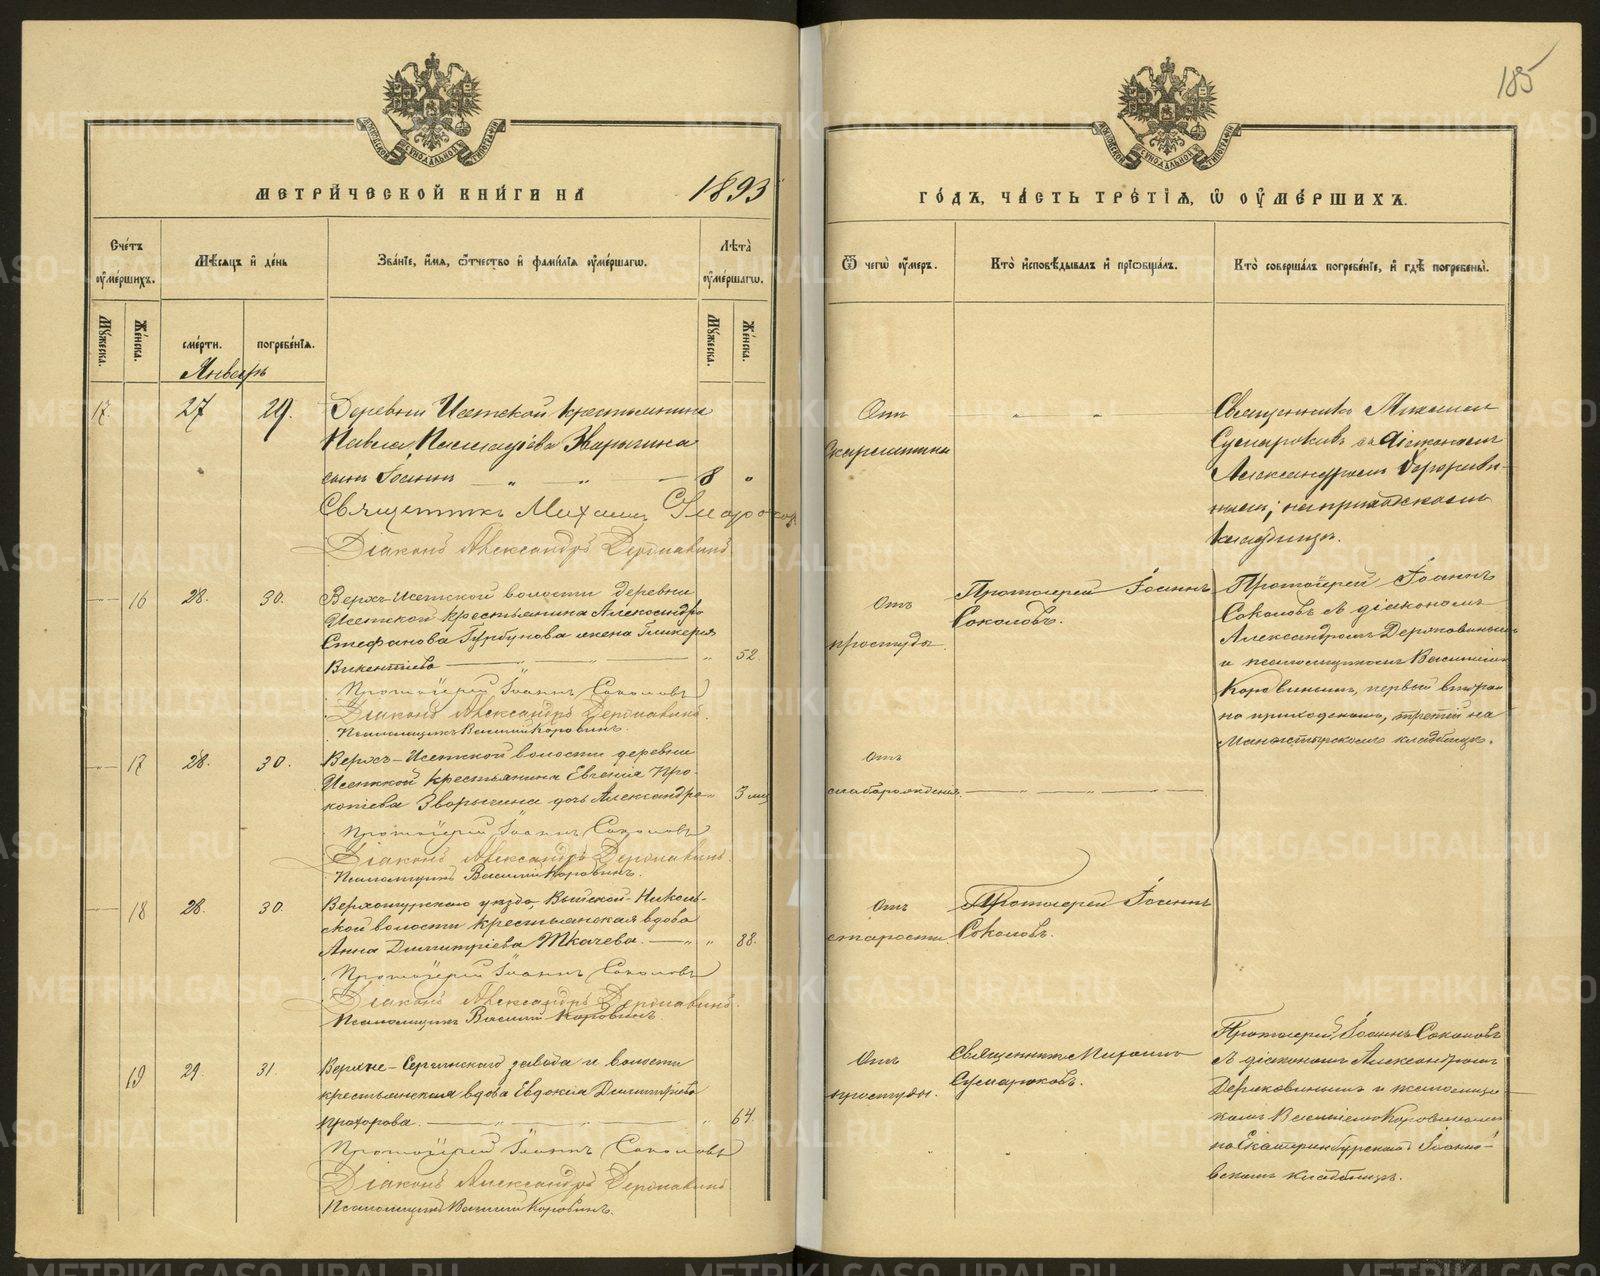 185
МЕТРИЧЕСКОЙ КНИГИ НА 1893
ГОДЪ, ЧАСТЬ ТРЕТІЯ, Ѿ ОУМЕРШИХЪ.
Счетъ оумершихъ.
Мѣсяцъ и день
Званіе, имя, ѿчество и фамилія оумершагѡ.
Лѣта оумершагѡ.
Ѿ чегѡ оумеръ.
Кто исповѣдывалъ и пріѡбщалъ.
Кто совершалъ погребеніе, и гдѣ погребены.
Мужеска.
Женска.
смерти.
погребенія.
Мужеска.
Женска.
Январь
17. 27 29. Деревни Исетской крестьянина
Павла Зварыгина
сынъ Іоаннъ 8
Священникъ Михаилъ
Діаконъ Александръ Державинъ
Отъ
скарлатины
Священникъ Михаилъ
Сумароковъ съ діакономъ
Александромъ Державинымъ
нымъ; на приходскомъ
кладбищѣ.
16 28. 30. Верхъ-Исетской волости деревни
Исетской крестьянина Александра
Стефанова Гурбунова жена Гликерія
Викентіева 52.
Протоіерей Іоаннъ Соколовъ
Діаконъ Александръ Державинъ.
Псаломщикъ Василій Коровинъ.
Отъ
простуды.
Протоіерей Іоаннъ
Соколовъ.
Протоіерей Іоаннъ
Соколовъ съ діакономъ
Александромъ Державинымъ
и псаломщикомъ Василіемъ
Коровинымъ, первый второй
на приходскомъ, третій на
Монастырскомъ кладбищѣ.
17 28. 30. Верхъ-Исетской волости деревни
Исетской крестьянина Евгенія Про-
копіева Зварыгина дочь Александра 3 мѣс
Протоіерей Іоаннъ Соколовъ
Діаконъ Александръ Державинъ.
Псаломщикъ Василій Коровинъ.
Отъ
слаборожденія
18 28. 30. Верхотурскаго уѣзда, Выйской-Николь-
ской волости крестьянская вдова
Анна Димитріева Ткачева. 88.
Протоіерей Іоаннъ Соколовъ
Діаконъ Александръ Державинъ.
Псаломщикъ Василій Коровинъ.
Отъ
старости.
Протоіерей Іоаннъ
Соколовъ.
19 29. 31. Верхне-Сергинскаго завода и волости
крестьянская вдова Евдокія Димитріева
Прохорова. 64.
Протоіерей Іоаннъ Соколовъ
Діаконъ Александръ Державинъ
Псаломщикъ Василій Коровинъ.
Отъ
простуды.
Священникъ Михаилъ
Сумароковъ.
Протоіерей Іоаннъ Соколовъ
съ діакономъ Александромъ
Державинымъ и псаломщи-
комъ Василіемъ Коровинымъ
на Екатеринбургскомъ Іоанно-
вскомъ кладбищѣ.
METRIKI.GASO-URAL.RU